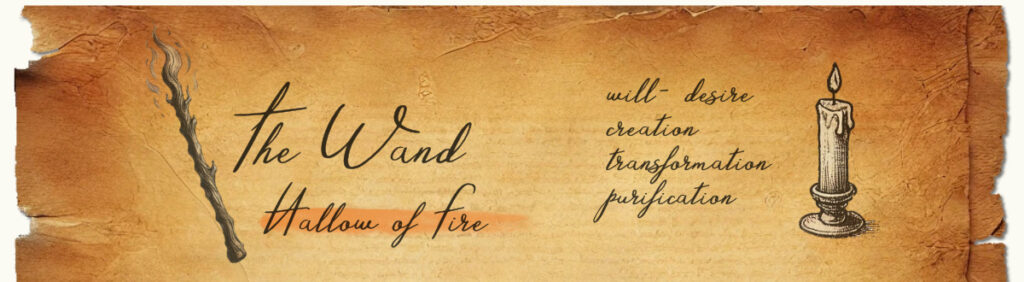 the Wand
Hallow of fire
will- desire
creation
transformation
purification